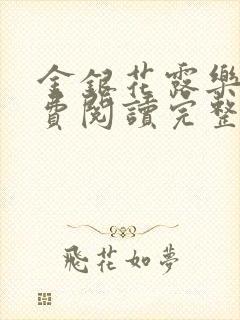 金銀花露樂
費閱讀完整
飛花如夢